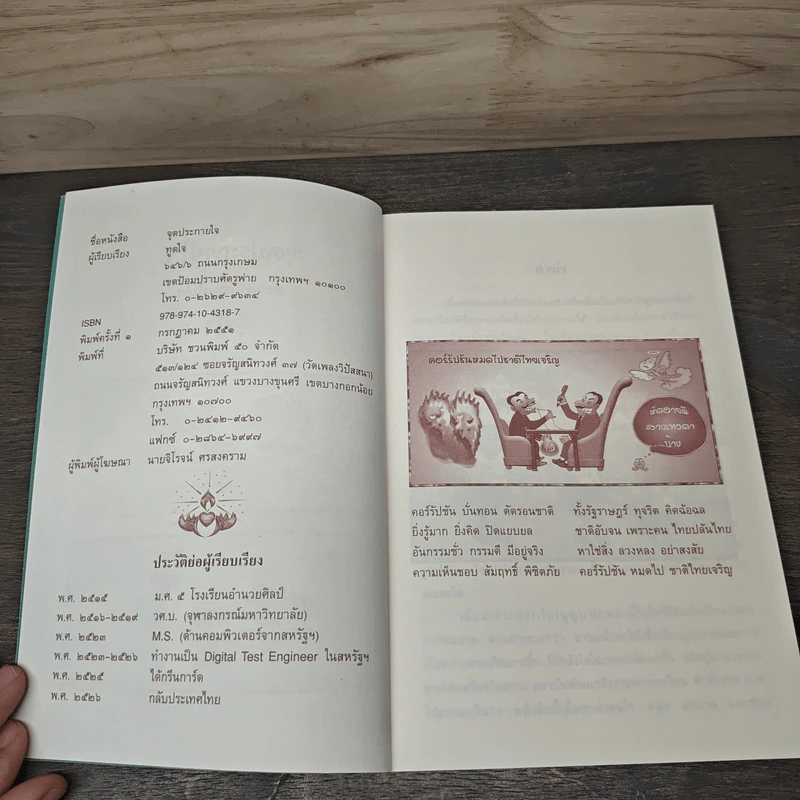 ชื่อหนังสือ จุดประกายใจ
ผู้เรียบเรียง ทูตใจ
๖๔๖/๖ ถนนกรุงเกษม
เขตป้อมปราบศัตรูพ่าย กรุงเทพฯ ๑๐๑๐๐
โทร. ๐-๒๖๒๙-๙๖๓๔
ISBN 978-974-10-4318-7
พิมพ์ครั้งที่ ๑ กรกฎาคม ๒๕๕๑
พิมพ์ที่ บริษัท ชวนพิมพ์ ๕๐ จำกัด
๕๑๓/๑๒๔ ซอยจรัญสนิทวงศ์ ๓๗ (วัดเพลงวิปัสสนา)
ถนนจรัญสนิทวงศ์ แขวงบางขุนศรี เขตบางกอกน้อย
กรุงเทพฯ ๑๐๗๐๐
โทร. ๐-๒๔๑๒-๙๔๖๐
แฟกซ์ ๐-๒๘๖๔-๖๙๙๗
ผู้พิมพ์ผู้โฆษณา นายจิโรจน์ ศรสงคราม
ประวัติย่อผู้เรียบเรียง
พ.ศ. ๒๕๑๕ ม.ศ. ๕ โรงเรียนอำนวยศิลป์
พ.ศ. ๒๕๑๖-๒๕๑๙ วศ.บ. (จุฬาลงกรณ์มหาวิทยาลัย)
พ.ศ. ๒๕๒๓ M.S. (ด้านคอมพิวเตอร์จากสหรัฐฯ)
พ.ศ. ๒๕๒๓-๒๕๒๖ ทำงานเป็น Digital Test Engineer ในสหรัฐฯ
พ.ศ. ๒๕๒๕ ได้กรีนการ์ด
พ.ศ. ๒๕๒๖ กลับประเทศไทย
คอร์รัปชันหมดไปชาติไทยเจริญ
หัดอายผี
สางเทวดา
บ้าง
คอร์รัปชัน บั่นทอน ตัดรอนชาติ ทั้งรัฐราษฎร์ ทุจริต คิดฉ้อฉล
ยิ่งรู้มาก ยิ่งคิด ปิดแยบยล ชาติอับจน เพราะคน ไทยปล้นไทย
อันกรรมชั่ว กรรมดี มีอยู่จริง หาใช่สิ่ง ลวงหลง อย่าสงสัย
ความเห็นชอบ สัมฤทธิ์ พิชิตภัย คอร์รัปชัน หมดไป ชาติไทยเจริญ